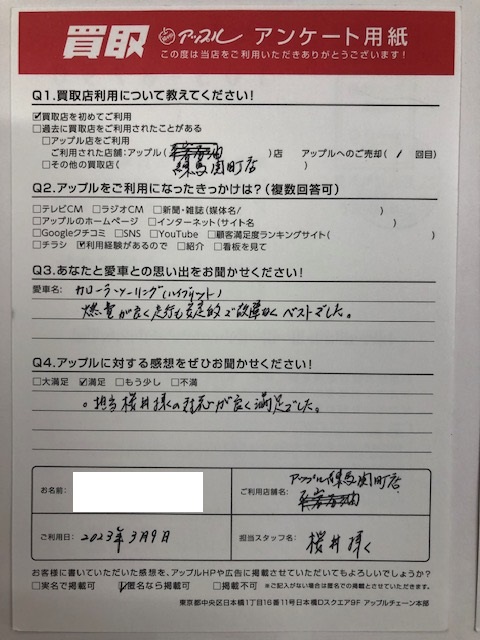 買取 アップル アンケート用紙
この度は当店をご利用いただきありがとうございます!
Q1.買取店利用について教えてください!
☑買取店を初めてご利用
□過去に買取店をご利用されたことがある
□アップル店をご利用
ご利用された店舗:アップル( )店 アップルへのご売却( 1 回目)
□その他の買取店( 練馬関町店 )
Q2.アップルをご利用になったきっかけは?(複数回答可)
□テレビCM □ラジオCM □新聞・雑誌(媒体名/ )
□アップルのホームページ □インターネット(サイト名 )
□Googleクチコミ □SNS □YouTube □顧客満足度ランキングサイト( )
□チラシ ☑利用経験があるので □紹介 □看板を見て
Q3.あなたと愛車との思い出をお聞かせください!
愛車名: カローラツーリング(ハイブリット)
燃費が良く走行も安定的で故障なくベストでした。
Q4.アップルに対する感想をぜひお聞かせください!
□大満足 ☑満足 □もう少し □不満
。担当桜井様の対応が良く満足でした。
お名前:
ご利用店舗名: アップル練馬関町店
ご利用日: 2023年3月9日
担当スタッフ名: 桜井様
お客様に書いていただいた感想を、アップルHPや広告に掲載させていただいてもよろしいでしょうか?
□実名で掲載可 ☑匿名なら掲載可 □掲載不可 ※ご記入がない場合は匿名での掲載とさせていただきます。
東京都中央区日本橋1丁目16番11号日本橋Dスクエア9F アップルチェーン本部